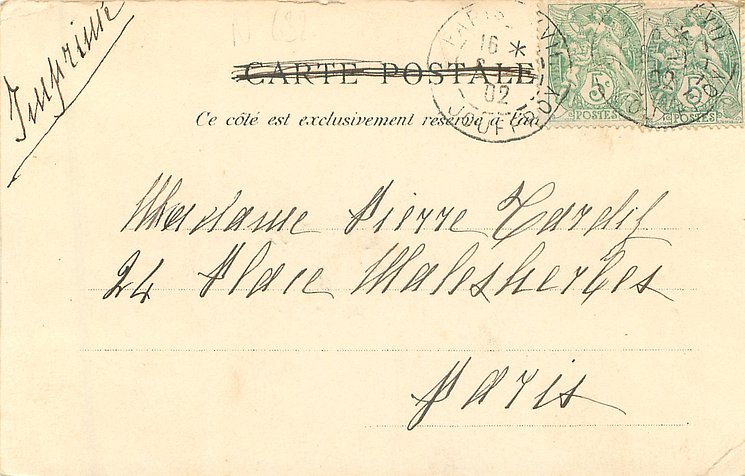 Imprimé
N 692
CARTE POSTALE
Ce côté est exclusivement réservé à
Madame Pierre Tardif
24 Place Malesherbes
Paris
PARIS
16
02
JOUFFROY
5c
POSTES
5c
POSTES